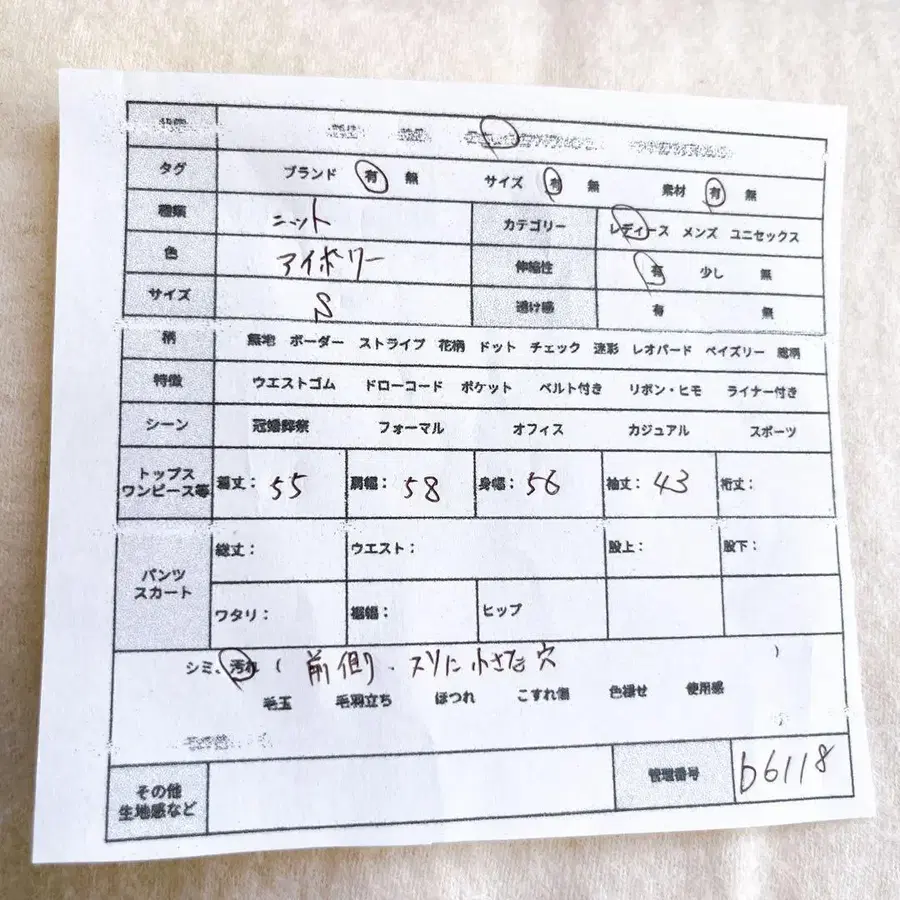 タグ ブランド 有 無 サイズ 有 無 素材 有 無
種類 ニット カテゴリー レディース メンズ ユニセックス
色 アイボリー 伸縮性 有 少し 無
サイズ S 透け感 有 無
柄 無地 ボーダー ストライプ 花柄 ドット チェック 迷彩 レオパード ペイズリー 総柄
特徴 ウエストゴム ドローコード ポケット ベルト付き リボン・ヒモ ライナー付き
シーン 冠婚葬祭 フォーマル オフィス カジュアル スポーツ
トップス
ワンピース等 着丈： 55 肩幅： 58 身幅： 56 袖丈： 43 裄丈：
パンツ
スカート 総丈： ウエスト： 股上： 股下：
ワタリ： 裾幅： ヒップ
シミ、汚れ （ 前側り・ に小さな穴 ）
毛玉 毛羽立ち ほつれ こすれ傷 色褪せ 使用感
その他
生地感など 管理番号 b6118